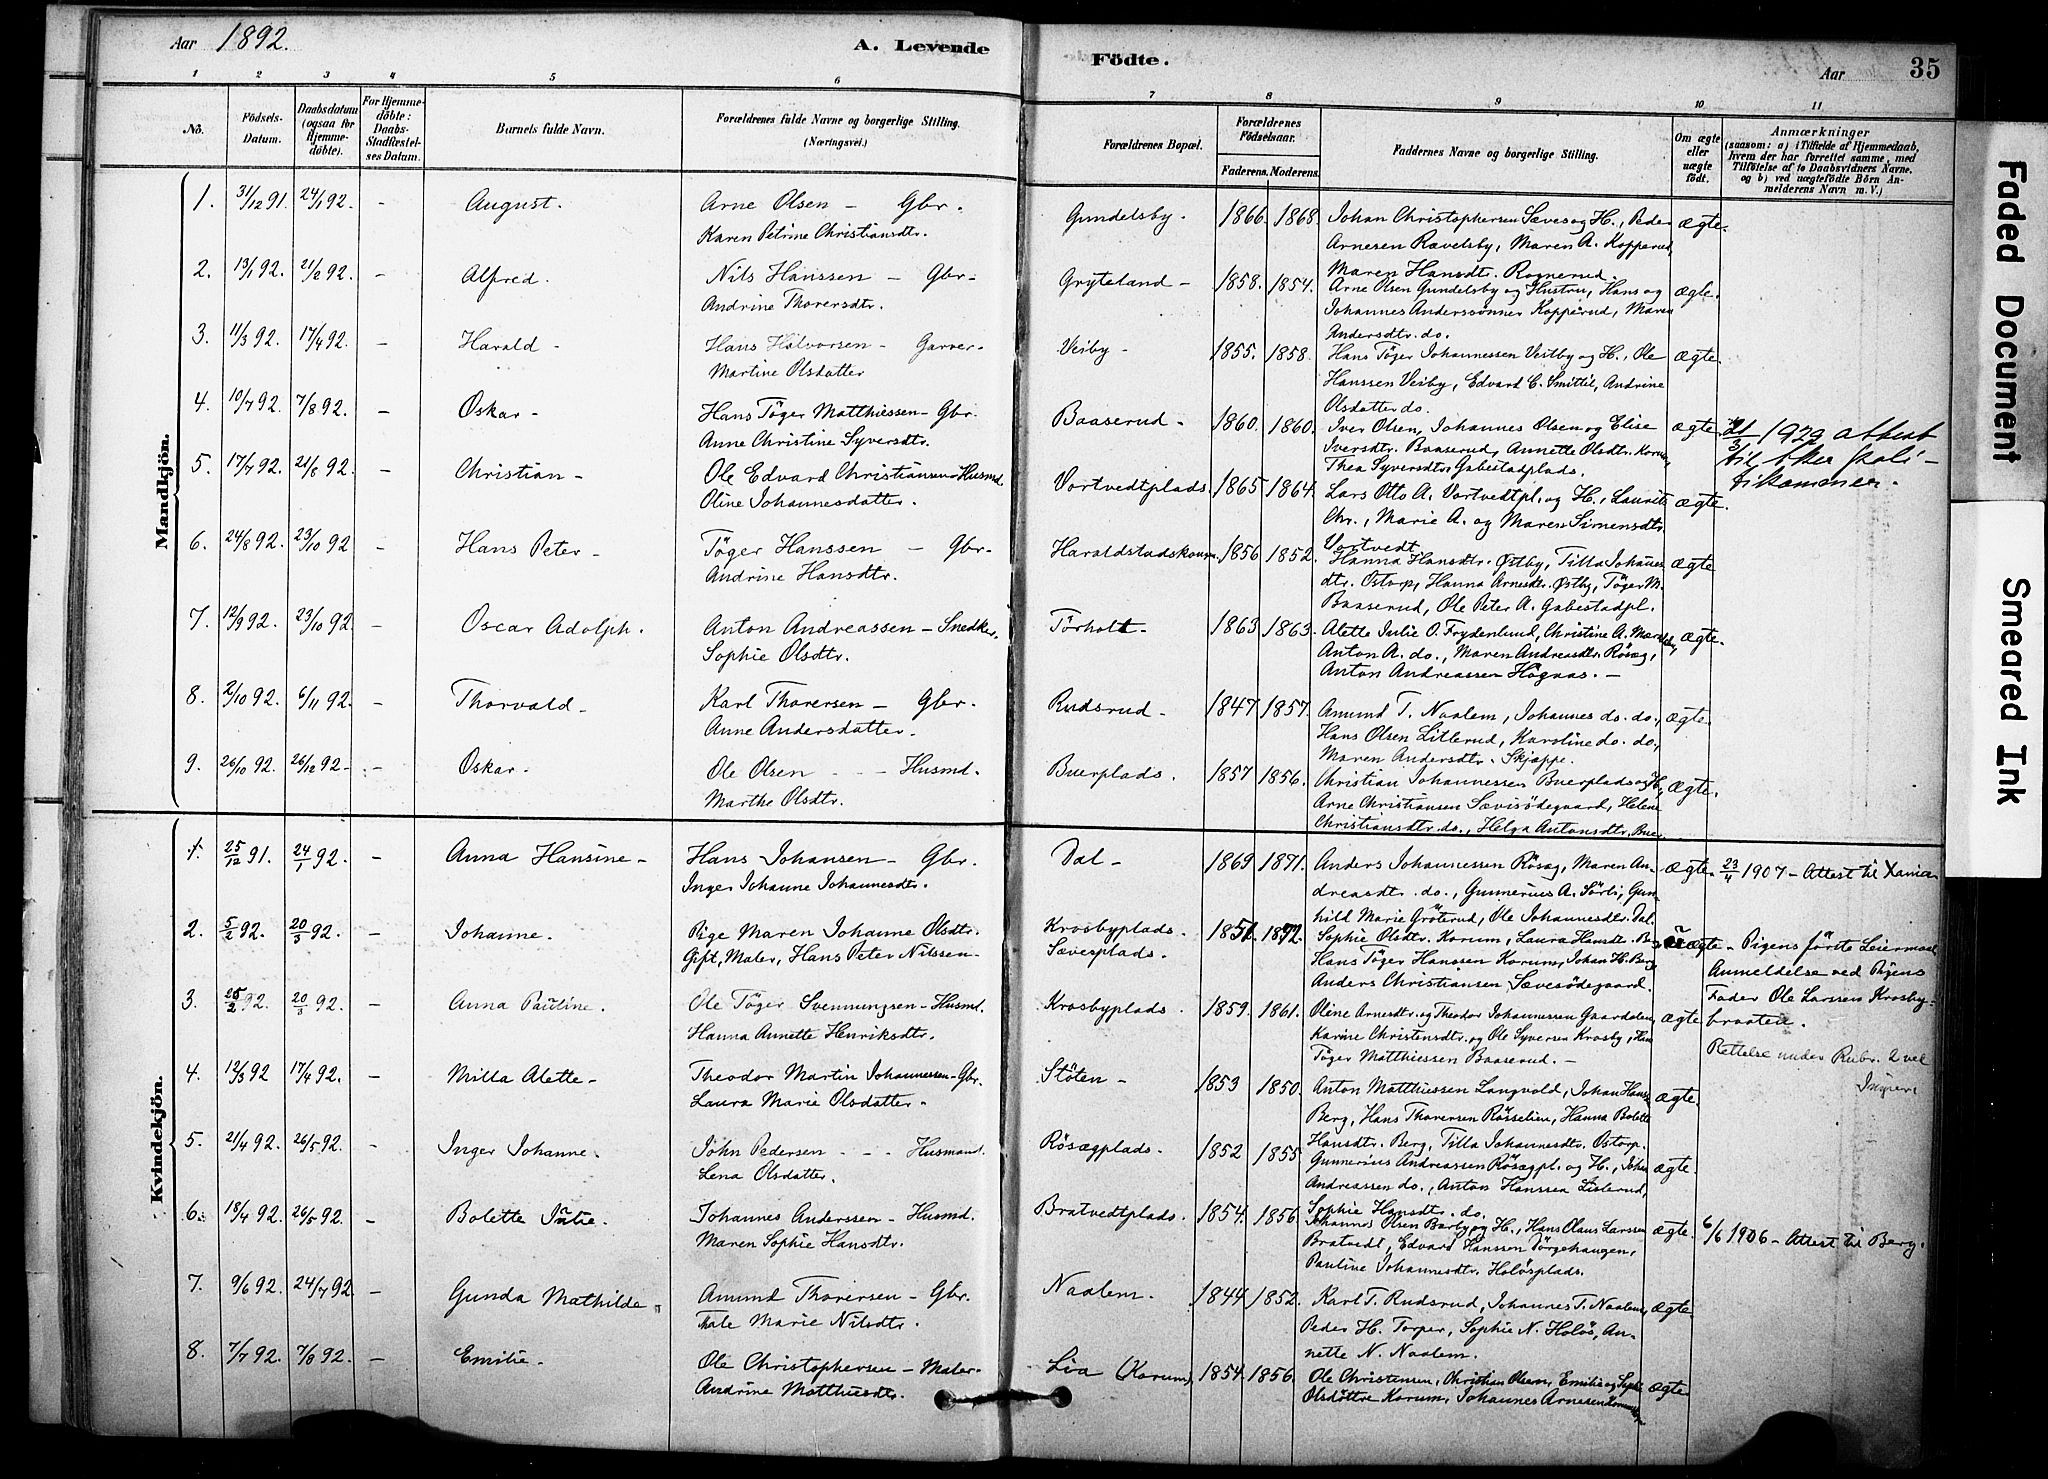 Aar 1892.
A. Levende
Födte.
Aar
35
1 2 3 4 5 6 7 8 9 10 11
No.
Födsels-Datum.
Daabsdatum (ogsaa for Hjemme-döbte).
For Hjemme-döbte: Daabs-Stadfæstel-ses Datum.
Barnets fulde Navn.
Forældrenes fulde Navne og borgerlige Stilling. (Næringsvei.)
Forældrenes Bopæl.
Forældrenes Födselsaar.
Faderens. Moderens.
Faddernes Navne og borgerlige Stilling.
Om ægte eller uægte födt.
Anmærkninger
(saasom: a) i Tilfælde af Hjemmedaab,
hvem der har forrettet samme, med
Tilföielse af to Daabsvidners Navne.
og b) ved uægtefödte Börn An-
melderens Navn m. V.)
Mandkjön.
1. 31/12 91. 24/1 92. - August. Arne Olsen - Gbr. Gundelsby. 1866. 1868. Johan Christophersen Sæves og H., Peder ægte.
Karen Petrine Christiansdtr. Arnesen Ravelsby, Maren A. Kopperud,
Maren Hansdtr. Rognerud.
2. 13/1 92. 21/2 92. - Alfred. Nils Hanssen - Gbr. Gryteland - 1858. 1854. Arne Olsen Gundelsby og Hustru, Hans og ægte.
Andrine Thorersdtr. Johannes Anderssönner Kopperud, Maren
Andersdtr. do.
3. 11/3 92. 17/4 92. - Harald - Hans Halvorsen - Garver. Veiby - 1855. 1858. Hans Töger Johannessen Veitby og H., Ole ægte.
Martine Olsdatter Hanssen Veiby, Edvard C. Smittil, Andrine
Olsdatter do.
4. 10/7 92. 7/8 92. - Oskar - Hans Töger Matthiessen - Gbr. Baaserud - 1860. 1860. Iver Olsen, Johannes Olsen og Elise ægte 21/3 1929 attest
Anne Christine Syversdtr. Iversdtr. Baaserud, Annette Olsdtr. Korum, til Aker poli-
Thea Syversdtr. Gabestadplads. tikammer.
5. 17/7 92. 21/8 92. - Christian - Ole Edvard Christiansen - Husmd. Vortvedtplads. 1865 1864. Lars Otto A. Vortvedtpl. og H., Laurits ægte.
Oline Johannesdatter. Chr., Marie A. og Maren Simensdtr.
Vortvedt.
6. 24/8 92. 23/10 92 - Hans Peter - Töger Hanssen - Gbr. 1856 1852. Hanna Hansdtr. Østby, Tilla Johannes- ægte
Andrine Hansdtr. dtr. Ostorp, Hanna Arnesdtr. Østby, Töger M.
Baaserud, Ole Peter A. Gabestadpl.
7. 12/9 92. 23/10 92. - Oscar Adolph. Anton Andreassen - Snedker. Törholt - 1863 1863. Alette Julie O. Frydenlund, Christine A. ægte.
Sophie Olsdtr. Anton A. do., Maren Andreasdtr. Rösæg,
Anton Andreassen Högaas. -
8. 2/10 92. 6/11 92. - Thorvald. Karl Thorersen - Gbr. Rudsrud - 1847 1857. Amund T. Naalem, Johannes do. do., ægte.
Anne Andersdatter. Hans Olsen Litlerud, Karoline do. do.,
Maren Andersdtr. Skjæppe.
9. 26/10 92. 26/12 92. - Oskar. Ole Olsen - Husmd. Buerplads. 1857 1856. Christian Johannessen Buerplads og H., ægte.
Marthe Olsdtr. Arne Christiansen Sævisödegaard, Helene
Christiansdtr. do., Helga Antonsdtr. Buer.
Kvindekjön.
1. 25/12 91. 24/1 92. - Anna Hansine - Hans Johansen - Gbr. Dal - 1869 1871. Anders Johannessen Rösæg, Maren An- ægte. 23/4 1907 - Attest til Xania
Inger Johanne Johannesdtr. dreasdtr. do., Gunnerius A. Sörli, Gun-
hild Marie Gröterud, Ole Johannesdtr. Dal.
2. 5/2 92. 20/3 92. - Johanne. Pige Maren Johanne Olsdtr. Krosbyplads. 1851. 1872. Sophie Olsdtr. Korum, Laura Hansdtr. uægte - Pigens förste Leiermaal
Gift, Maler, Hans Peter Nilssen - Sævesplads. Hans Töger Hanssen Korum, Johan H. Berg Anmeldelse ved Pigens
Anders Christiansen Sævesödegaard. Fader Ole Larssen Krosby-
3. 25/2 92. 20/3 92. - Anna Pauline. Ole Töger Svenningsen - Husmd. Krosbyplads. 1859. 1861. Oline Arnesdtr. og Theodor Johannessen Gaardolen, ægte. braaten.
Hanna Annette Henriksdtr. Karine Christensdtr. og Ole Syversen Krosby, Hans
Töger Matthiessen Baaserud. - Rettelse under Rubr. 2 ved
4. 12/3 92 17/4 92. - Milla Alette - Theodor Martin Johannessen - Gbr. Stöten - 1853 1850. Anton Matthiessen Langvold, Johan Hans. ægte.
Laura Marie Olsdatter - Berg, Hans Thorersen Rösselien, Hanna Bolette
Hansdtr. Berg, Tilla Johannesdtr. Ostorp.
5. 21/4 92. 26/5 92. - Inger Johanne. John Pedersen - Husmand. Rösægplads. 1852 1855 Gunnerius Andreassen Rösægpl. og H., Johan ægte.
Lena Olsdatter. Andreassen do., Anton Hanssen Lislerud,
Sophie Hansdtr. do.
6. 18/4 92. 26/5 92. - Bolette Julie. Johannes Anderssen - Husmd. Bratvedtplads. 1854. 1856. Johannes Olsen Barby og H., Hans Olaus Larssen ægte. 6/6 1906 - Attest til Berg.
Maren Sophie Hansdtr. Bratvedt, Edvard Hanssen Törgehaugen,
Pauline Johannesdtr. Holösplads.
7. 9/6 92. 24/7 92. - Gunda Mathilde. Amund Thorersen - Gbr. Naalem. 1844 1852. Karl T. Rudsrud, Johannes T. Naalem, ægte
Thale Marie Nilsdtr. Peder H. Torper, Sophie N. Holös, An-
nette N. Naalem.
8. 7/7 92. 7/8 92. - Emilie. Ole Christophersen - Maler. Lia (Korum) 1854. 1856. Ole Christensen, Christian Olsen, Emilie og ægte
Andrine Matthiesdtr. Olsdöttre Korum, Johannes Arnesen
Faded Document
Smeared Ink